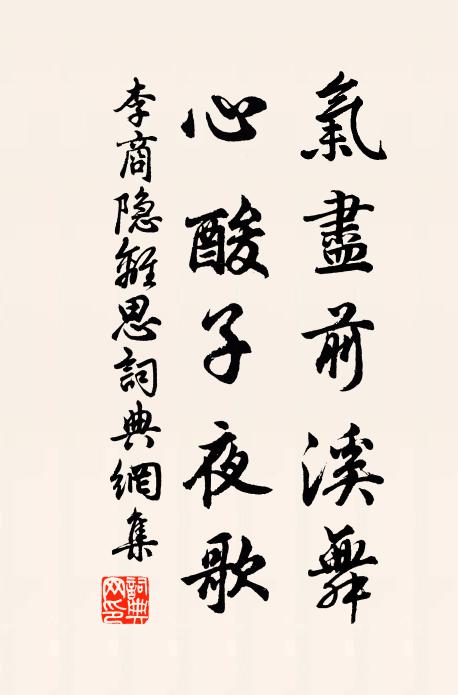 氣盡前溪舞
心酸子夜歌
李商隐離思詞典網集
詞典网印